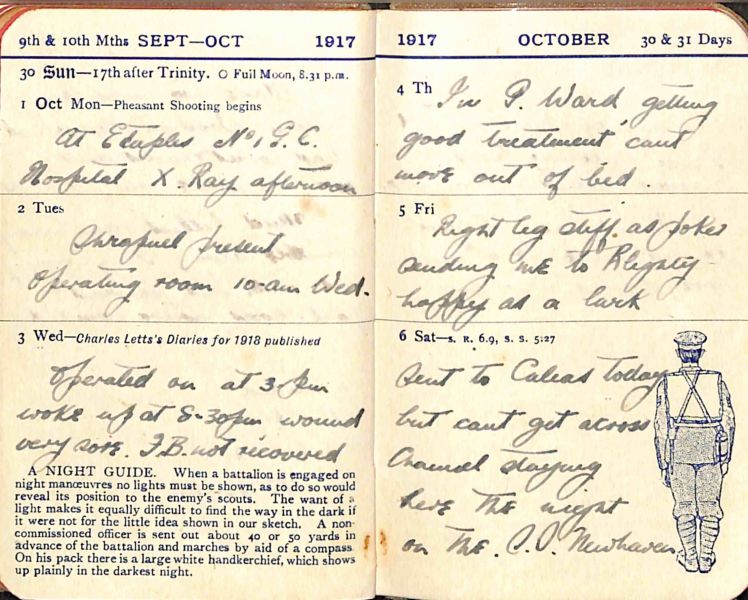 9th & 10th Mths SEPT—OCT 1917
30 Sun—17th after Trinity. O Full Moon, 8.31 p.m.
1 Oct Mon—Pheasant Shooting begins
At Etaples No 1 G. C.
Hospital X. Ray afternoon
2 Tues
Shrapnel present
Operating room 10-am Wed.
3 Wed—Charles Letts's Diaries for 1918 published
Operated on at 3-pm
woke up at 8-30pm wound
very sore. F.B. not recovered
A NIGHT GUIDE. When a battalion is engaged on
night manœuvres no lights must be shown, as to do so would
reveal its position to the enemy's scouts. The want of a
light makes it equally difficult to find the way in the dark if
it were not for the little idea shown in our sketch. A non-
commissioned officer is sent out about 40 or 50 yards in
advance of the battalion and marches by aid of a compass
On his pack there is a large white handkerchief, which shows
up plainly in the darkest night.
1917 OCTOBER 30 & 31 Days
4 Th
In P. Ward getting
good treatment cant
move out of bed.
5 Fri
Right leg stiff as poker
sending me to Blighty
happy as a lark
6 Sat—S. R. 6.9, S. S. 5.27
Sent to Calias today
but cant get across
Channel staying
here the night
on the. Newhaven